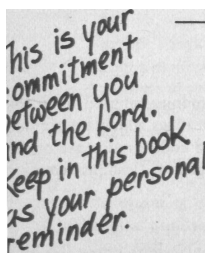 This is your
commitment
between you
and the Lord.
Keep in this book
as your personal
reminder.